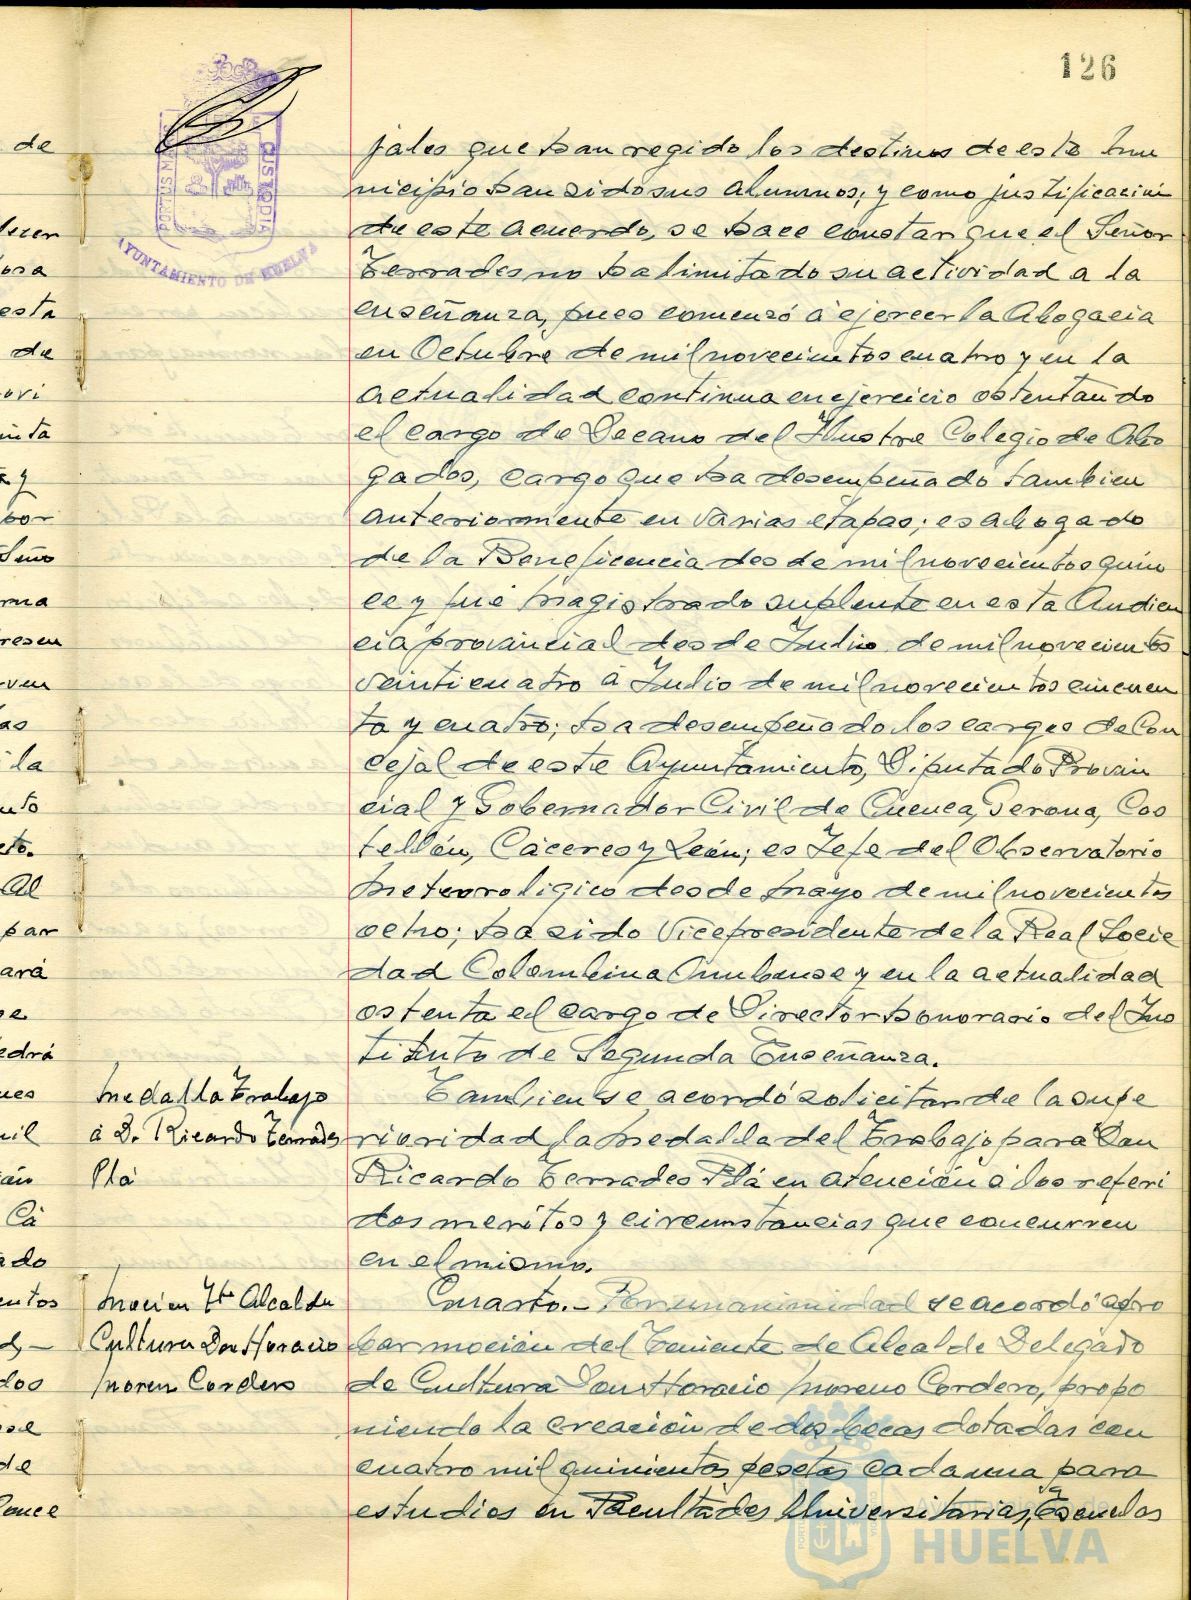 126
PORTUS MARIS
CUSTODIA
AYUNTAMIENTO DE HUELVA
jales que han regido los destinos de este Mu
nicipio han sido sus alumnos; y como justificación
de este acuerdo, se hace constar que el Señor
Terrades no ha limitado su actividad a la
enseñanza, pues comenzó á ejercer la Abogacia
en Octubre de mil novecientos cuatro y en la
actualidad continua en ejercicio ostentando
el cargo de Decano del Ilustre Colegio de Abo
gados, cargo que ha desempeñado tambien
anteriormente en varias etapas; es abogado
de la Beneficencia desde mil novecientos quin
ce y fué Magistrado suplente en esta Audien
cia provincial desde Julio de mil novecientos
veinticuatro á Julio de mil novecientos cincuen
ta y cuatro; ha desempeñado los cargos de Con
cejal de este Ayuntamiento, Diputado Provin
cial y Gobernador Civil de Cuenca, Gerona, Cas
tellón, Cáceres y León; es Jefe del Observatorio
Meteorologico desde Mayo de mil novecientos
ocho; ha sido Vicepresidente de la Real Socie
dad Colombina Onubense y en la actualidad
ostenta el cargo de Director honorario del Ins
tituto de Segunda Enseñanza.
Medalla Trabajo
á D. Ricardo Terrades
Plá
Tambien se acordó solicitar de la supe
rioridad la Medalla del Trabajo para Don
Ricardo Terrades Plá en atención á los referi
dos meritos y circunstancias que concurren
en el mismo.
Moción Tte Alcalde
Cultura Don Horacio
Moreno Cordero
Cuarto.- Por unanimidad se acordó apro
bar moción del Teniente de Alcalde Delegado
de Cultura Don Horacio Moreno Cordero, propo
niendo la creación de dos becas dotadas con
cuatro mil quinientas pesetas cada una para
estudios en Facultades Universitarias, Escuelas
de
esta
de
y
por
Seño
la
Al
par
ará
se
Cá
ado
entos
dos
de
Ponce
Ayuntamiento de
HUELVA